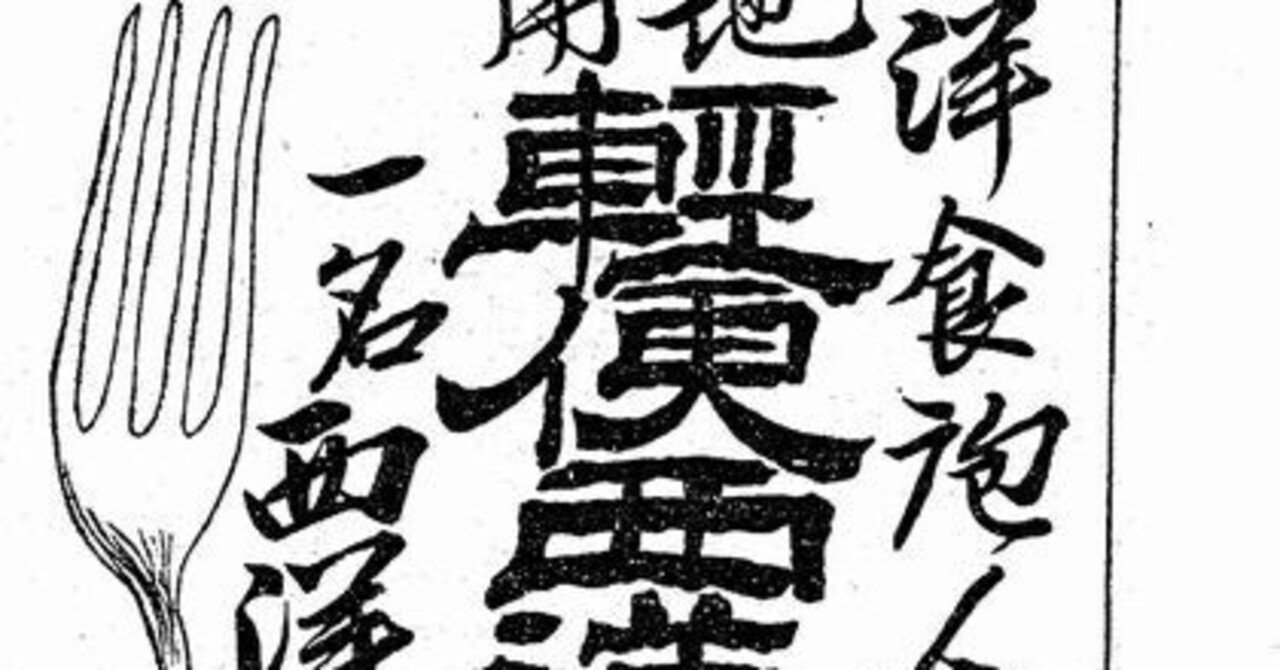 洋食庖人
地
用
輕便西洋
一名西洋